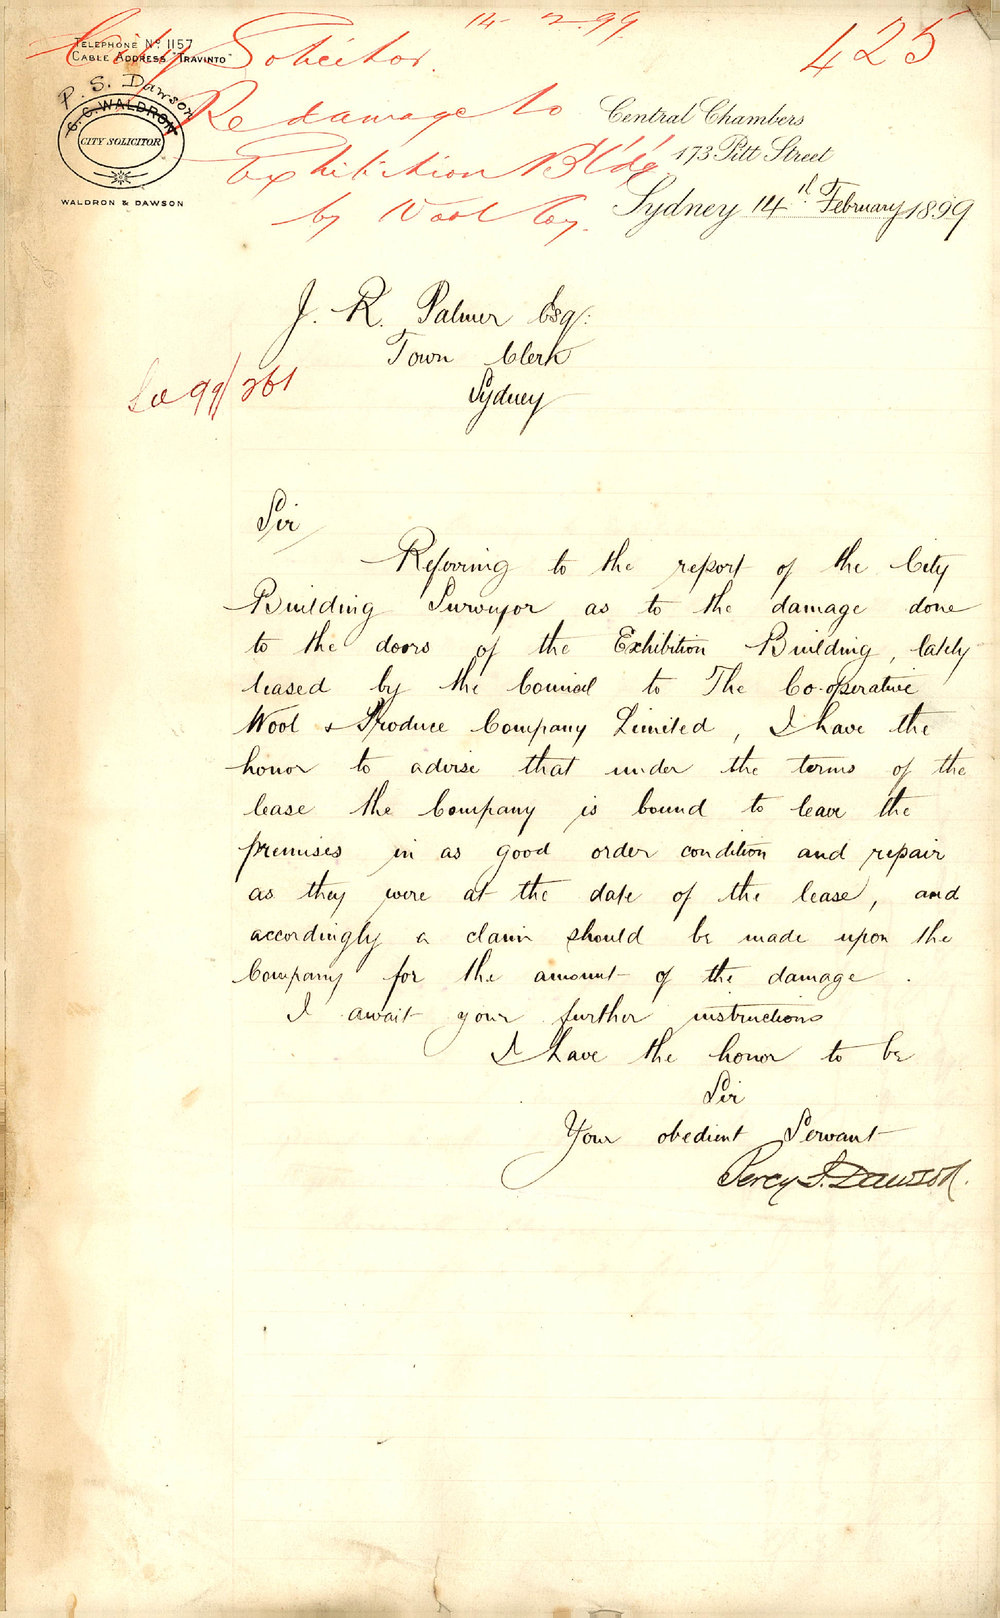 14-2-99
425
City Solicitor.
Re damage to
Exhibition Bldg
by Wool Coy.
TELEPHONE No. 1157
CABLE ADDRESS "TRAVINTO"
P. S. Dawson
C. C. WALDRON
CITY SOLICITOR
WALDRON & DAWSON
Central Chambers
173 Pitt Street
Sydney 14th February 1899
J. R. Palmer Esq:
Town Clerk
Sydney
99/261
Sir
Referring to the report of the City
Building Surveyor as to the damage done
to the doors of the Exhibition Building, lately
leased by the Council to The Co-operative
Wool & Produce Company Limited, I have the
honor to advise that under the terms of the
lease the Company is bound to leave the
premises in as good order condition and repair
as they were at the date of the lease, and
accordingly a claim should be made upon the
Company for the amount of the damage.
I await your further instructions
I have the honor to be
Sir
Your obedient Servant
Percy S. Dawson.